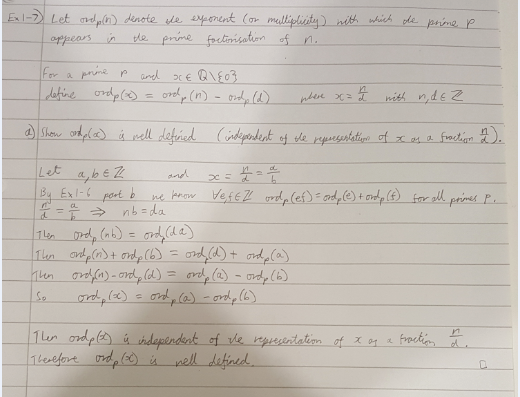 Ex 1-7) Let ord_p(n) denote the exponent (or multiplicity) with which the prime p
appears in the prime factorisation of n.
For a prime p and x ∈ Q\{0}
define ord_p(x) = ord_p(n) - ord_p(d) where x = n/d with n, d ∈ Z
a) Show ord_p(x) is well defined (independent of the representation of x as a fraction n/d).
Let a, b ∈ Z and x = n/d = a/b
By Ex 1-6 part b we know ∀e,f ∈ Z ord_p(ef) = ord_p(e) + ord_p(f) for all primes p.
n/d = a/b ⇒ nb = da
Then ord_p(nb) = ord_p(da)
Then ord_p(n) + ord_p(b) = ord_p(d) + ord_p(a)
Then ord_p(n) - ord_p(d) = ord_p(a) - ord_p(b)
So ord_p(x) = ord_p(a) - ord_p(b)
Then ord_p(x) is independent of the representation of x as a fraction n/d.
Therefore ord_p(x) is well defined. □